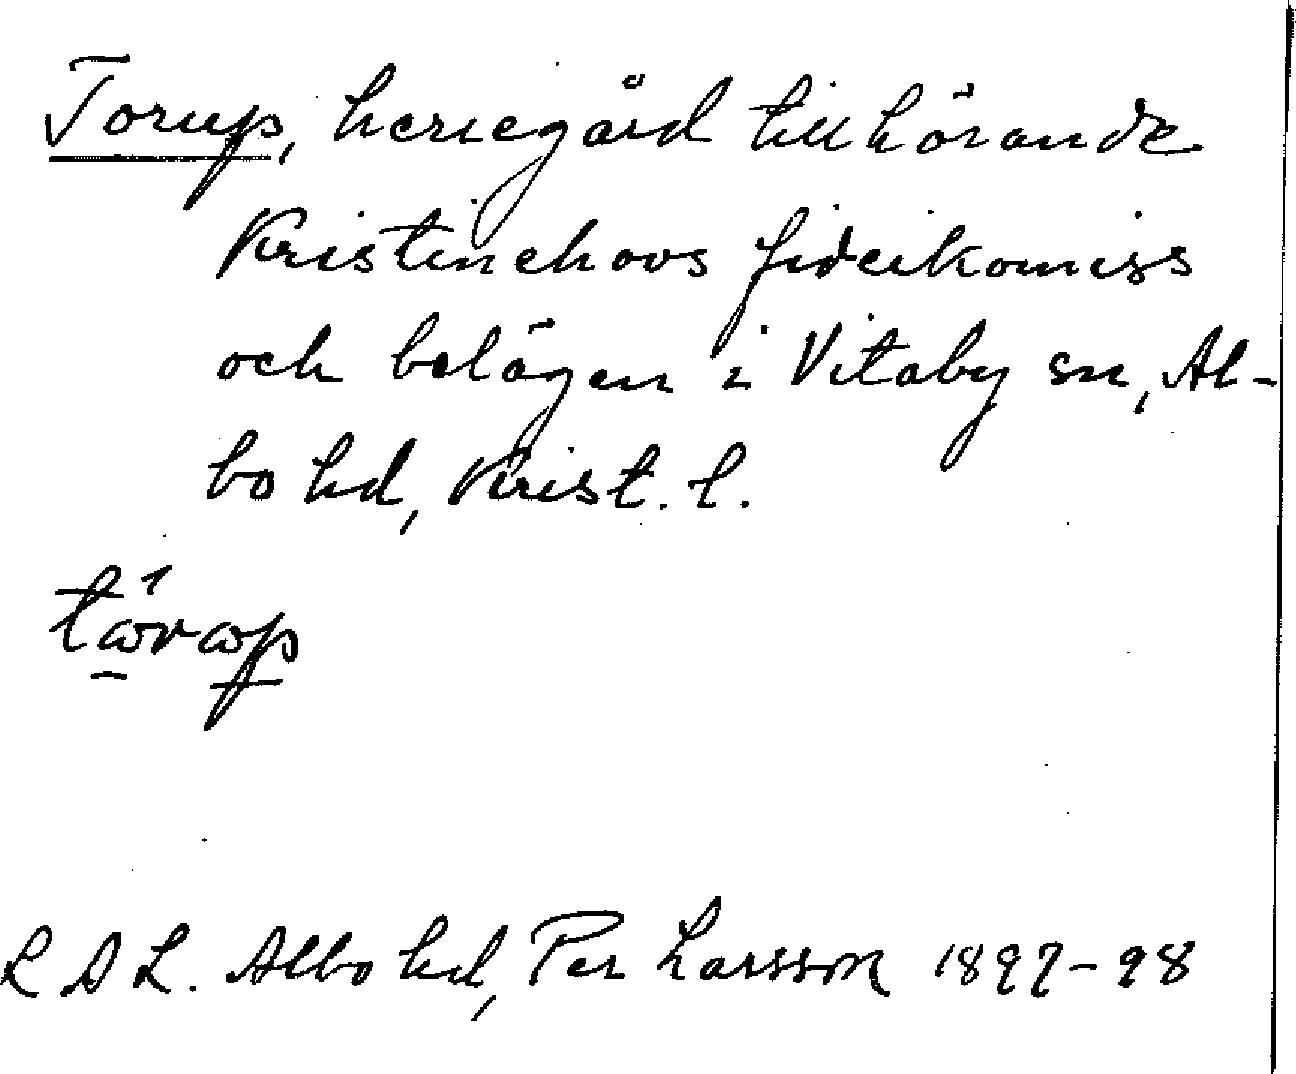 Torup, herregård tillhörande
Kristinehovs fideikomiss
och belägen i Vitaby sn, Al-
bo hd, Krist. l.
L D L. Albo hd, Per Larsson 1897-98